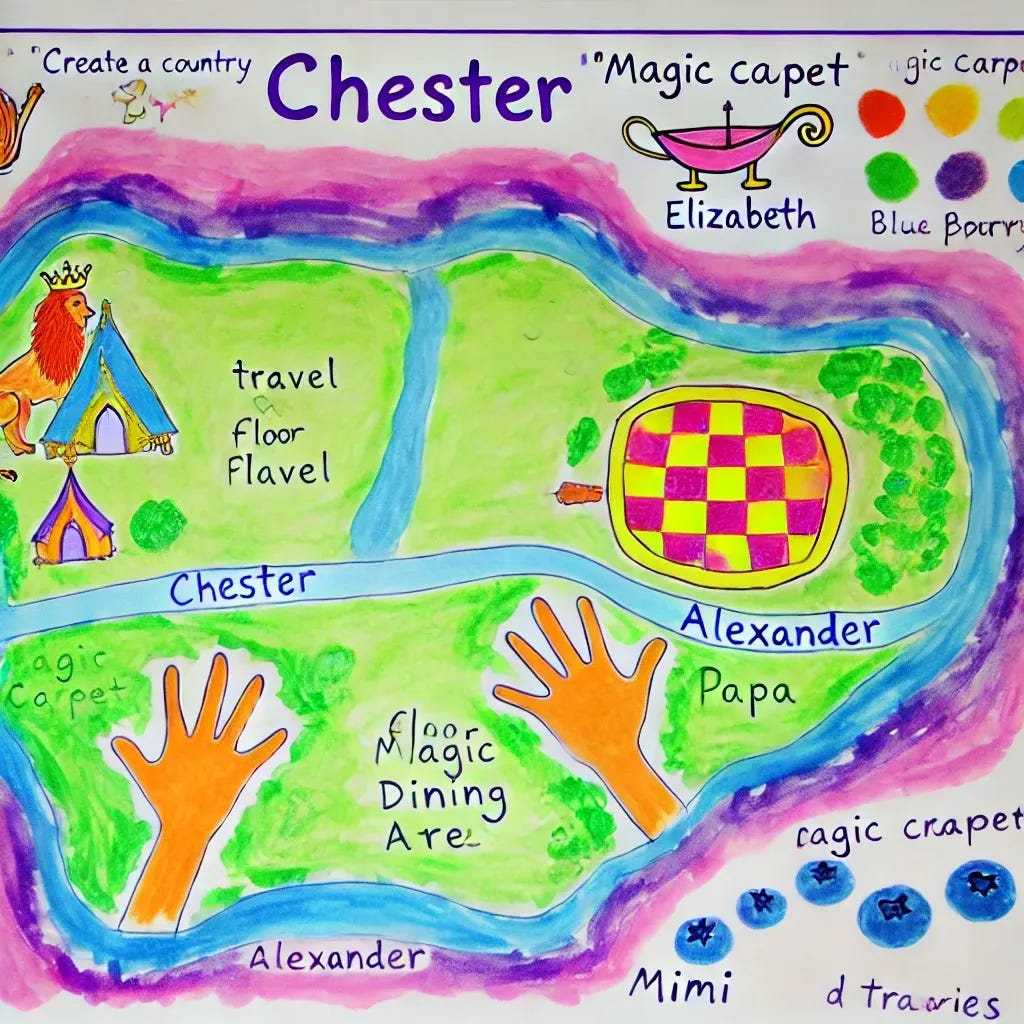 "Create a country
Chester
"Magic capet"
gic carp
Elizabeth
Blue
travel
floor
Flavel
Chester
Alexander
agic
Carpet
Papa
floor
Magic
Dining
Are
Alexander
cagic crapet
Mimi
d